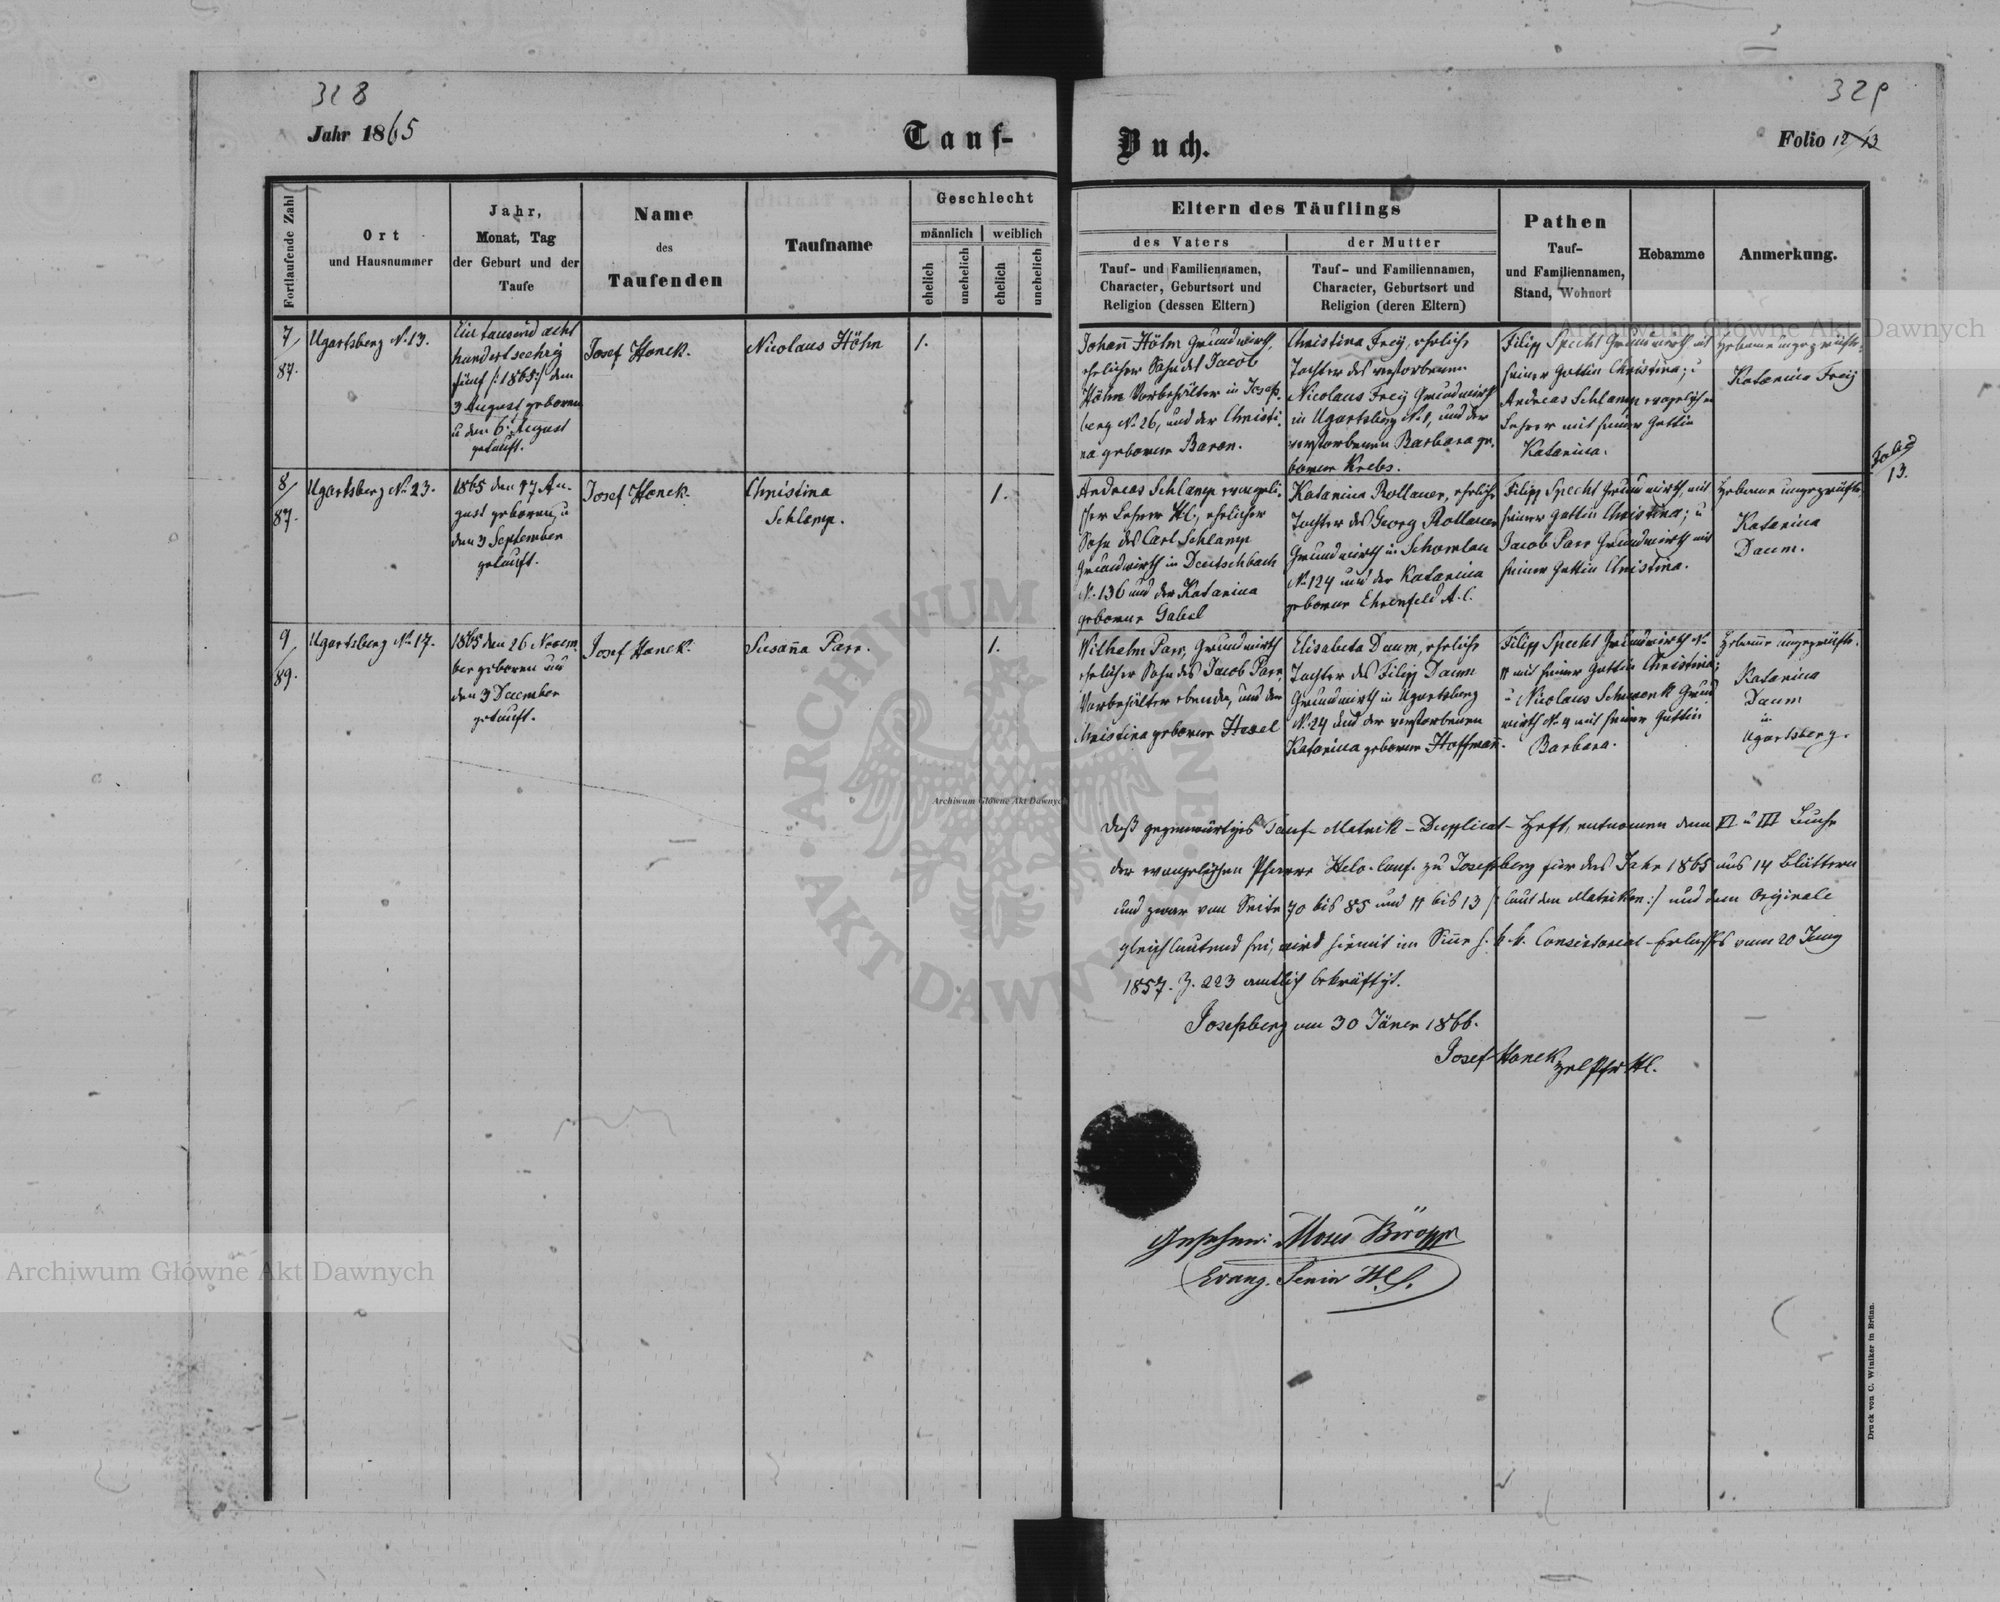 328
329
Jahr 1865
Tauf-
Buch.
Folio 12/13
Fortlaufende Zahl
Ort
und Hausnummer
Jahr,
Monat, Tag
der Geburt und der
Taufe
Name
des
Taufenden
Taufname
Geschlecht
männlich
weiblich
ehelich
unehelich
ehelich
unehelich
Eltern des Täuflings
des Vaters
der Mutter
Tauf- und Familiennamen,
Character, Geburtsort und
Religion (dessen Eltern)
Tauf- und Familiennamen,
Character, Geburtsort und
Religion (deren Eltern)
Pathen
Tauf-
und Familiennamen,
Stand, Wohnort
Hebamme
Anmerkung.
7/
87.
Ugartsberg N. 13.
Ein tausend acht
hundert sechzig
fünf /:1865:/ den
3 August geboren
u den 6. August
getauft.
Josef Hanek.
Nicolaus Höhn
1.
Johann̄ Höhn Grundwirth,
ehelicher Sohn des Jacob
Höhn Vorbehälter in Josefs-
berg N. 26, und der Christi-
na geborene Baron.
Christina Frey, eheliche
Tochter des verstorbenen
Nicolaus Frey Grundwirth
in Ugartsberg N. 1, und der
verstorbenen Barbara ge-
borene Krebs.
Filipp Specht Grundwirth mit
seiner Gattin Christina; u
Andreas Schlamp evangelischer
Lehrer mit seiner Gattin
Katarina.
Hebame ungeprüfte
Katarina Frey
Folio
13.
8/
87.
Ugartsberg N. 23.
1865 den 27 Au-
gust geboren, u
den 3 September
getauft.
Josef Hanek.
Christina
Schlamp.
1.
Andreas Schlamp evangeli-
scher Lehrer HC, ehelicher
Sohn des Carl Schlamp
Grundwirth in Deutschbach
N. 136 und der Katarina
geborene Gabel
Katarina Rollauer, eheliche
Tochter des Georg Rollauer
Grundwirth in Schomlau
N. 124 und der Katarina
geborene Ehrenfeld A. C.
Filipp Specht Grundwirth, mit
seiner Gattin Christina; u
Jacob Parr Grundwirth mit
seiner Gattin Christina.
Hebame ungeprüfte
Katarina
Daum.
9/
89.
Ugartsberg N. 17.
1865 den 26 Novem-
ber geboren und
den 3 December
getauft.
Josef Hanek.
Susan̄a Parr.
1.
Wilhelm Parr, Grundwirth
ehelicher Sohn des Jacob Parr,
Vorbehälter ebenda, und der
Christina geborene Hexel
Elisabeta Daum, eheliche
Tochter des Filipp Daum
Grundwirth in Ugartsberg
N. 24 und der verstorbenen
Katarina geborene Hoffman̄.
Filipp Specht Grundwirth N.
11 mit seiner Gattin Christina;
u Nicolaus Schwenk Grund
wirth N. 4 mit seiner Gattin
Barbara.
Hebam̄e ungeprüfte.
Katarina
Daum
in
Ugartsberg.
Daß gegenwärtiges Tauf-Matrik-Dupplicat-Heft, entnomen dem II u III Buche
der evangelischen Pfarre Helv. Conf. zu Josefsberg für das Jahr 1865 aus 14 Blättern
und zwar von Seite 70 bis 85 und 11 bis 13 /: laut den Matriken:/ und dem Originale
gleichlautend sei, wird hiemit im Sin̄e h. k. k. Consistorial-Erlasses vom 20 Juny
1857. Z. 223 amtlich bekräftigt.
Josefsberg am 30 Jäner 1866.
Josef Hanek
Gesehen: Moses
Evang. Senior HC.
Druck von C. Winiker in Brünn.
Archiwum Główne Akt Dawnych
Archiwum Główne Akt Dawnych
Archiwum Główne Akt Dawnych
ARCHIWUM
AKT DAWNYCH